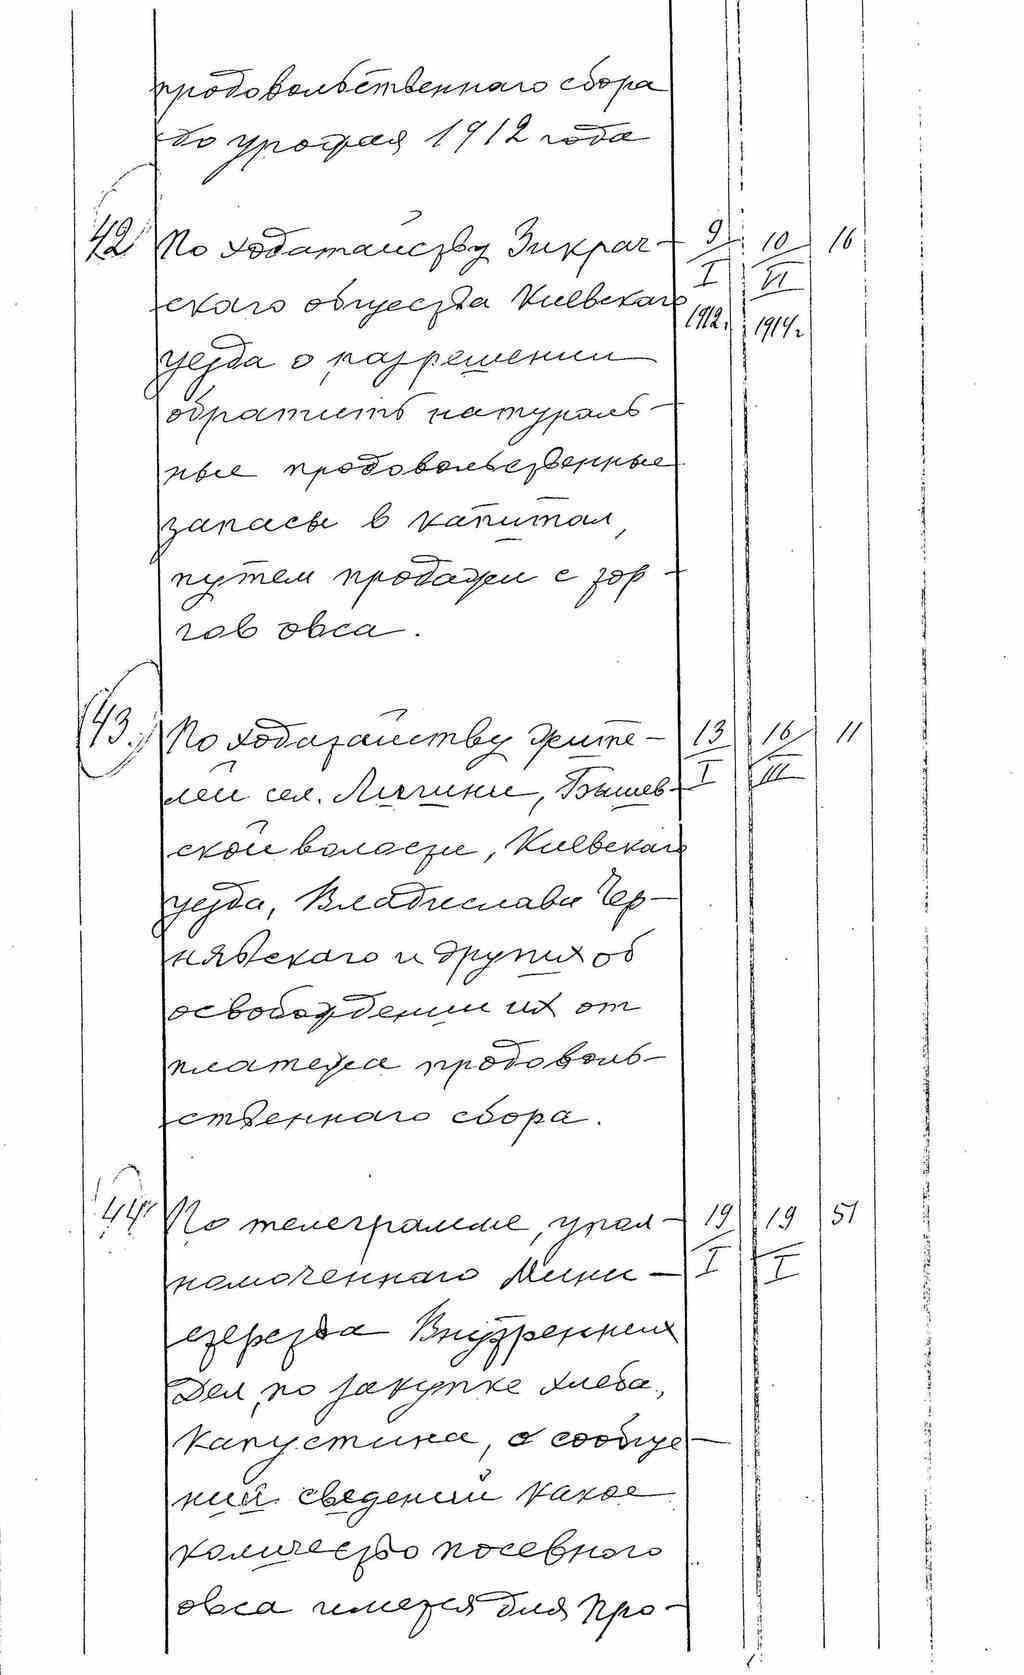 продовольственнаго сбора
до урожая 1912 года
42 По ходатайству Зикрач- 9/I 1912г. 10/VI 1914г 16
скаго общества Киевскаго
уезда о разрешении
обратить натураль-
ные продовольственные
запасы в капитал,
путем продажи с тор-
гов овса.
43. По ходатайству жите- 13/I 16/III 11
лей сел. Личинки, Бышев-
ской волости, Киевскаго
уезда, Владислава Чер-
нявскаго и других об
освобождении их от
платежа продоволь-
ственнаго сбора.
44 По телеграмме, упол- 19/I 19/I 51
номоченнаго Мини-
стерства Внутренних
Дел, по закупке хлеба,
Капустина, о сообще-
ний сведений какое
количество посевного
овса имется для про-